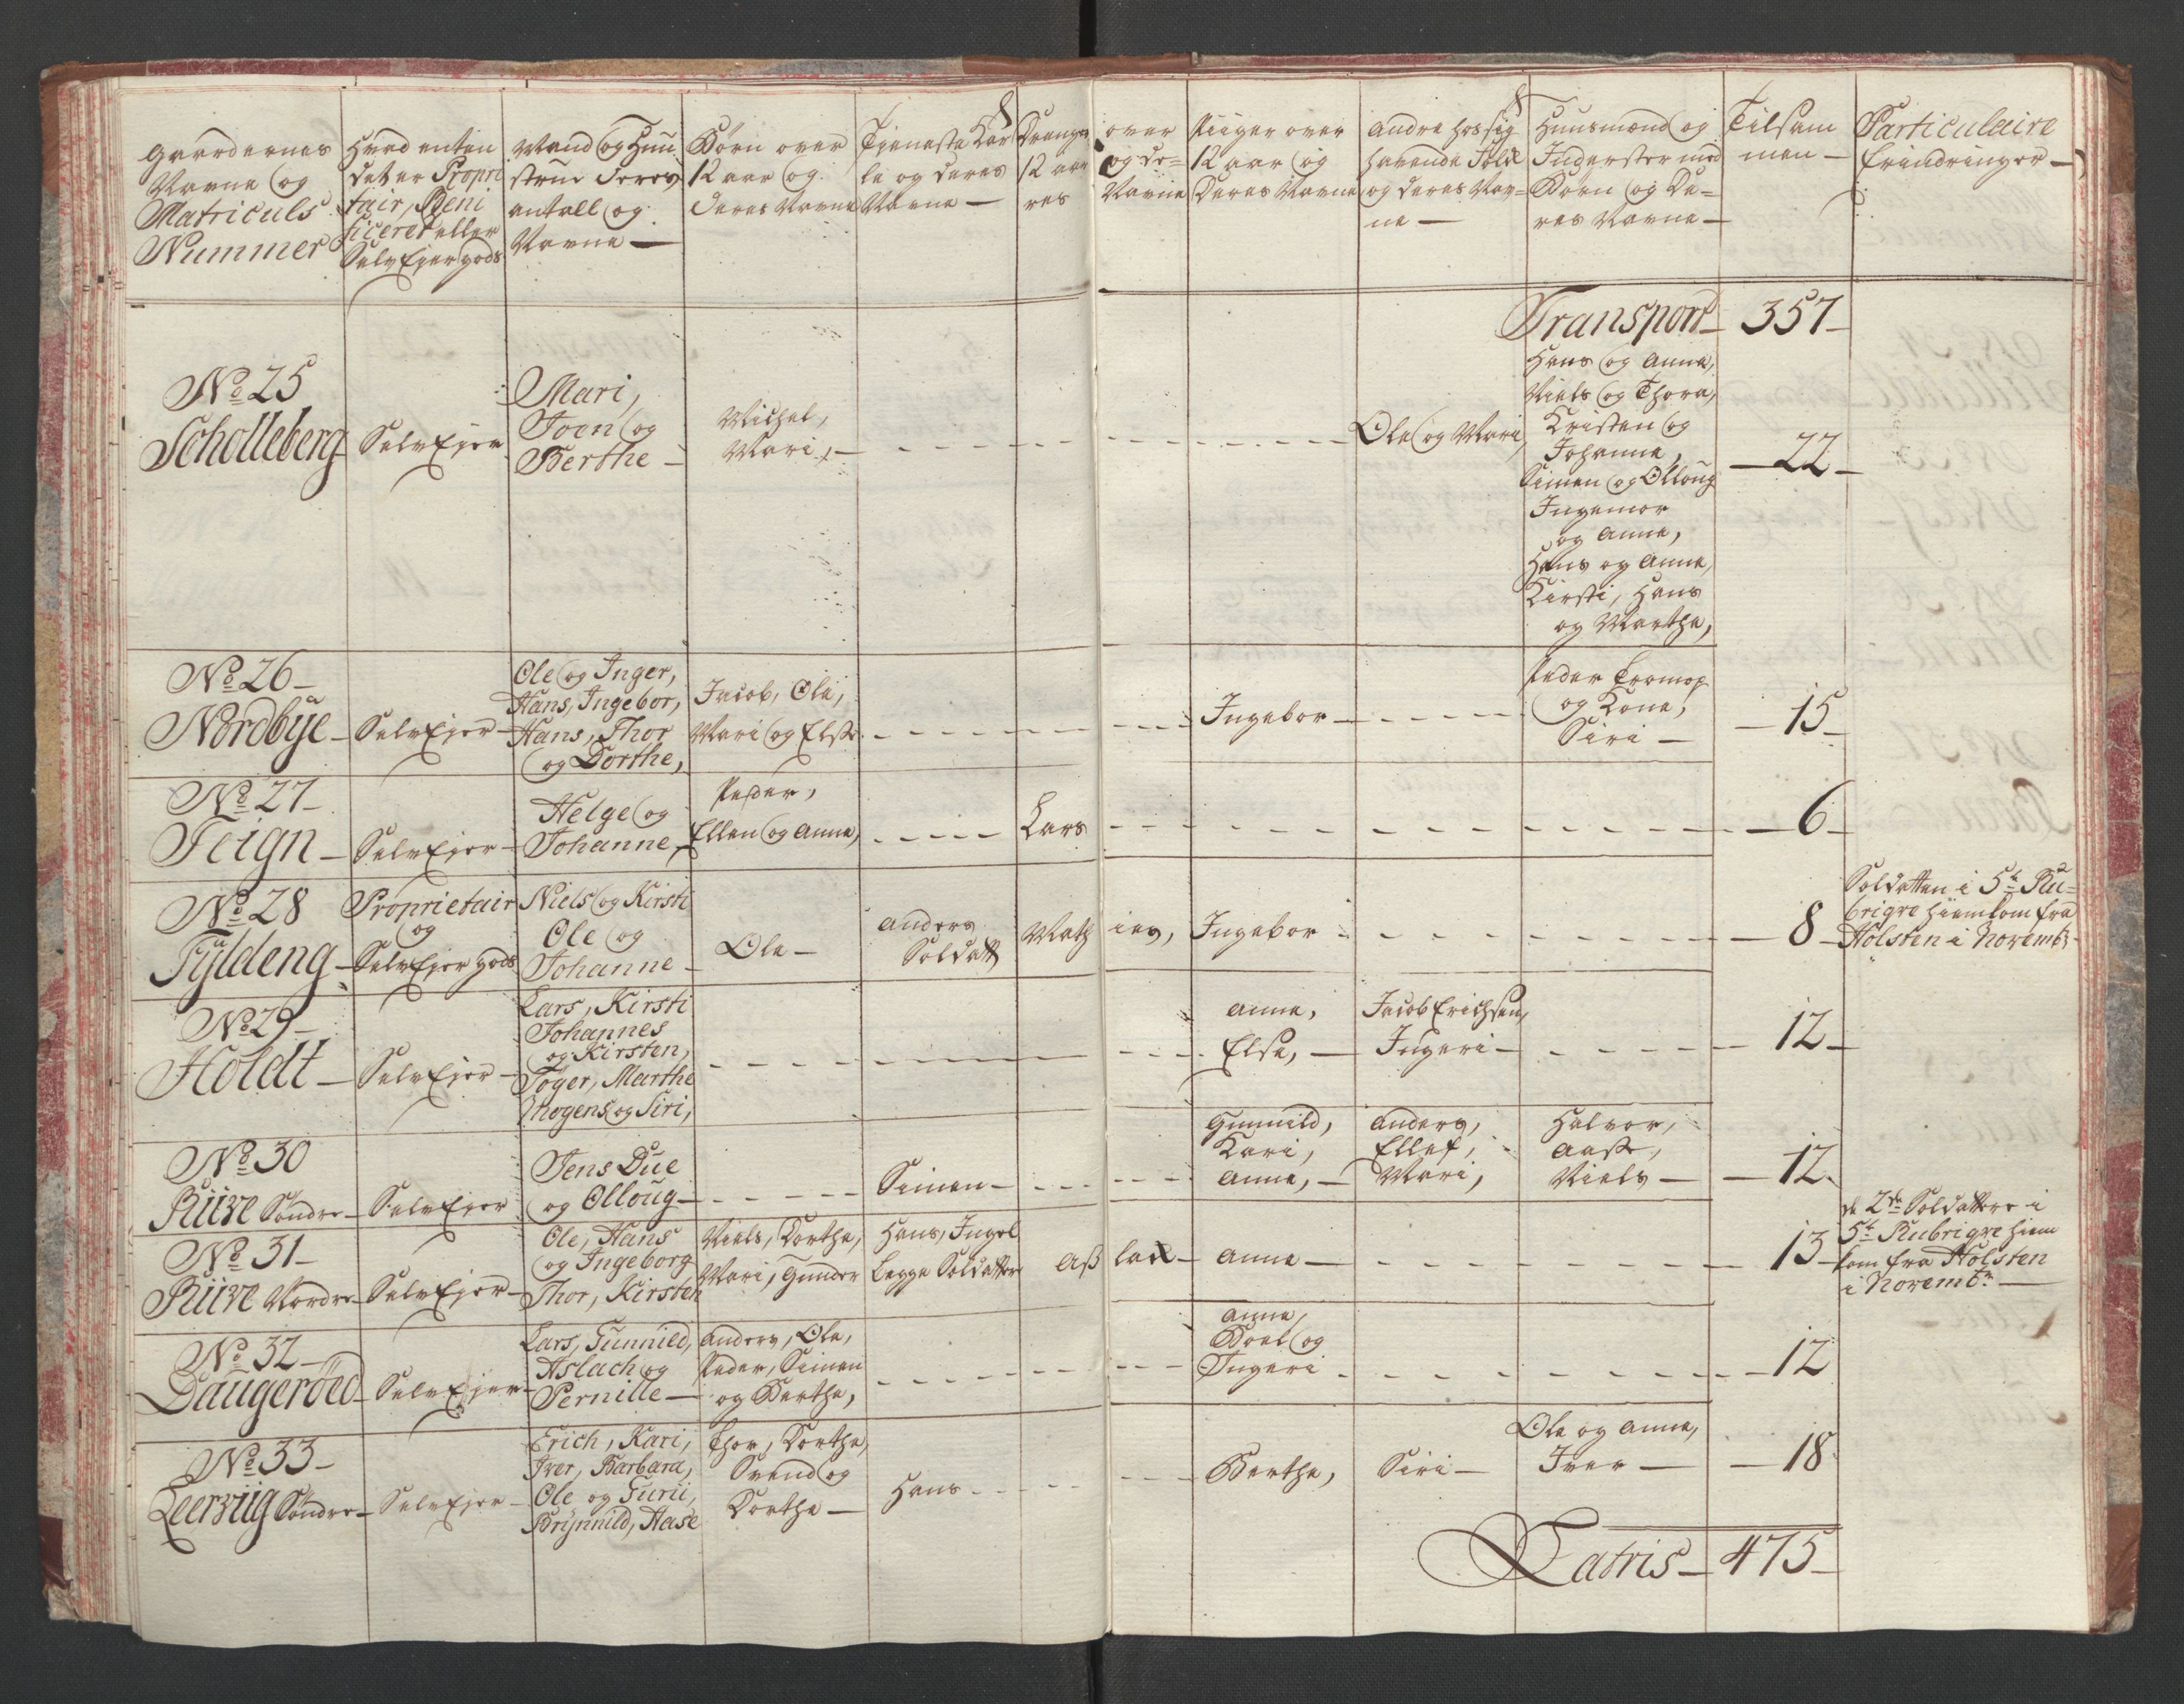 Gaardernes
Navne og
Matriculs
Nummer
Hvad enten
det er Propri
tair, Beni
ficeret eller
SelvEjer gods
Mand og Huu
strue deres
antall og
Navne —
Børn over
12 aar og
deres Navne
Tieneste Kar
le og deres
Navne —
Drenge over
12 aar og de=
res Navne
Piiger over
12 aar og
deres Navne
Andre hos sig
havende Folk
og deres Nav=
ne —
Huusmænd og
Inderster med
Børn og De=
res Navne —
Tilsam
men —
Particulaire
Erindringer —
Transport — 357 —
No 25
Scholleberg
SelvEjer
Mari,
Joen og
Berthe —
Michel,
Mari, —
Ole og Mari,
Hans og Anna,
Niels og Thora,
Kristen og
Johanna,
Simen og Olloug
Ingemor
og Anne,
Hans og Anne,
Kirsti, Hans
og Marthe,
— 22 —
No 26 —
Nordbÿe —
SelvEjer —
Ole og Inger,
Hans, Ingebor,
Hans, Thor
og Dorthe,
Jacob, Ole,
Mari og Else
Ingebor —
Peder
og Kone,
Siri —
— 15 —
No 27 —
Teign —
SelvEjer —
Helge og
Johanne,
Peder,
Ellen og Anne,
Lars
— 6 —
No 28
Fÿldeng —
Proprietair
og
SelvEjer gods
Niels og Kirsti
Ole og
Johanne —
Ole —
Anders
Soldatt
Mathies,
Ingebor
— 8 —
Soldatten i 5te Ru=
brigre hiemkom fra
Holsten i Novembr.
No 29 —
Holdt —
SelvEjer —
Lars, Kirsti
Johannes
og Kirsten,
Toger, Marthe
Mogens og Siri,
Anne,
Else, —
Jacob Erichsen,
Ingeri —
— 12 —
No 30
Riive Søndre —
SelvEjer
Jens Due
og Olloug —
Simen —
Gunnild,
Kari,
Anne, —
Anders,
Ellef,
Mari,
Halvor,
Aase,
Niels —
— 12.
No 31 —
Riive Nordre —
SelvEjer —
Ole, Hans
og Ingeborg
Thor, Kirsten
Niels, Dorthe,
Mari, Gunder
Hans, Ingel
begge Soldatter
Aslak —
Anne —
— 13 —
de 2de Soldattere i
5te Rubrigre hiem
kom fra Holsten
i Novembr. —
No 32 —
Daugerøed —
SelvEjer —
Lars, Gunnild,
Aslach og
Pernille —
Anders, Ole,
Peder, Simen
og Berthe,
Anne,
Boel og
Ingeri
— 12
No 33 —
Leerviig Søndre —
SelvEjer —
Erich, Kari,
Iver, Barbara,
Ole og Gurii,
Brÿnnild, Aase
Thor, Dorthe,
Svend og
Dorthe —
Hans
Berthe,
Siri —
Ole og Anne,
Iver —
— 18
Latris — 475 —